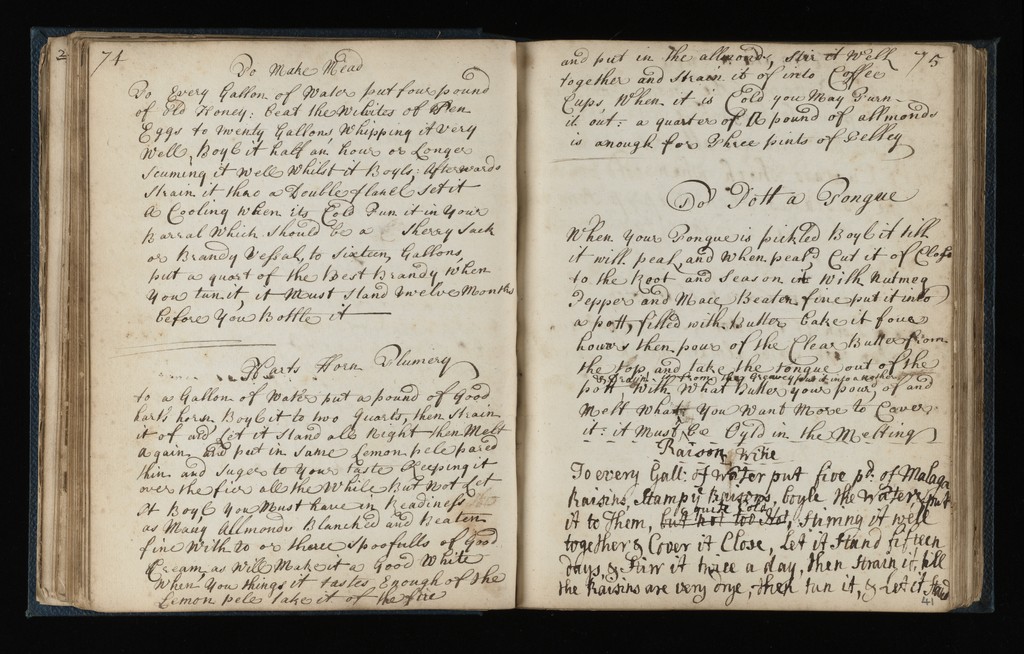 2
74
To Make Mead
To Every Gallon of Water put four pound
of Old Honey: beat the Whites of Ten
Eggs to twenty Gallons, Whipping it Very
Well, Boyl it half an hour or Longer
Scuming it Well Whilst it Boyls: Afterwards
Strain it thro a Double flanel Set it
A Cooling When its Cold Tun it in Your
Barral Which Should be a Sherry Sack
or Brandy Vessal, to Sixteen Gallons,
put a quart of the Best Brandy When
You tun it, it Must Stand Twelve Months
before You Bottle it
Harts Horn Flumery
to a Gallon of Water put a pound of Good
harts horn Boyl it to two Quarts, then Strain
it of and Let it Stand all Night then Melt
Again and put in Same Lemon pele pared
thin and Suger to Your taste Keeping it
over the fier all the While But Not Let
It Boyl You Must have in Readiness
as Many Allmonds Blanched and Beaten
fine With to or there Spoofulls of Good
Cream, as Will Make it a Good White
When You things it tastes Enough of the
Lemon pele take it of the fire
75
and put in the allmonds, Stir it Well
together and Strain it of into Coffee
Cups, When it is Cold you May Turn
it out: a quarter of A pound of allmonds
is anough for Three pints of Gelley
To Pott a Tongue
When Your Tongue is pickled Boyl it till
it will peal, and When peal'd Cut it of Close
to the Root and Season it With Nutmeg
Pepper and Mace Beaten fine put it into
a pott, filled with Butter bake it four
hours then pour of the Clear Butter from
the top, and take the tongue out of the
pott With What Butter you pour of and
Melt What You Want More to Cover
it: it Must be Oyl'd in the Melting
Raison Wine
To every Gall: of Water put five pd. of Malaga
Raisins, Stamp yr Raisons, boyle the Water & put
it to Them, but not too Hot, quite Cold, sturring it well
together & Cover it Close, Let it Stand fifteen
days & Sturr it twice a day, then Strain it, till
the Raisins are very drye, then tun it, & Let it Stand
41